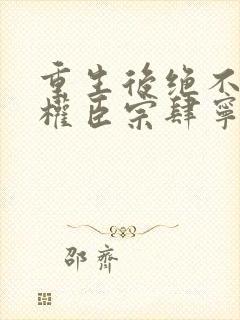 重生後绝不
權臣宗肆寧
邵齊